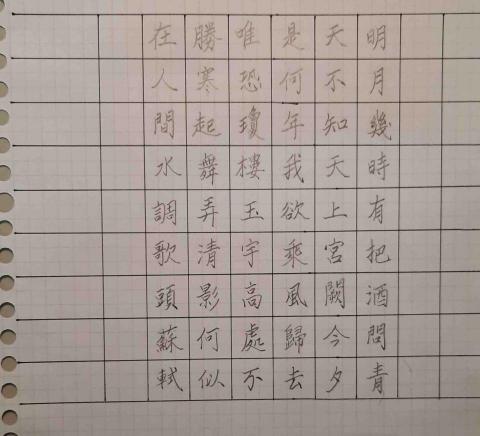 明月幾時有把酒問青
天不知天上宮闕今夕
是何年我欲乘風歸去
唯恐瓊樓玉宇高處不
勝寒起舞弄清影何似
在人間水調歌頭蘇軾